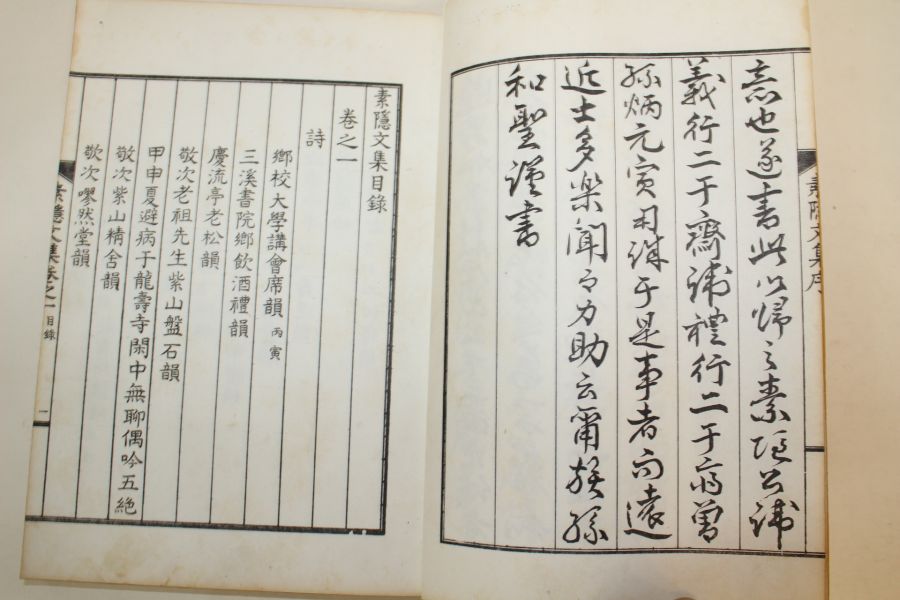 意也遂書此以歸之素隱公諱
義行二于齋諱禮行二于齋曾
孫炳元寅用誅于是事者而遠
近士多樂聞而力助云爾族孫
和聖謹書
素隱文集序
素隱文集目錄
卷之一
詩
鄉校大學講會席韻 丙寅
三溪書院鄉飲酒禮韻
慶流亭老松韻
敬次老祖先生紫山盤石韻
甲申夏避病于龍壽寺閑中無聊偶吟五絕
敬次紫山精舍韻
敬次嘐然堂韻
素隱文集卷之一 目錄 一